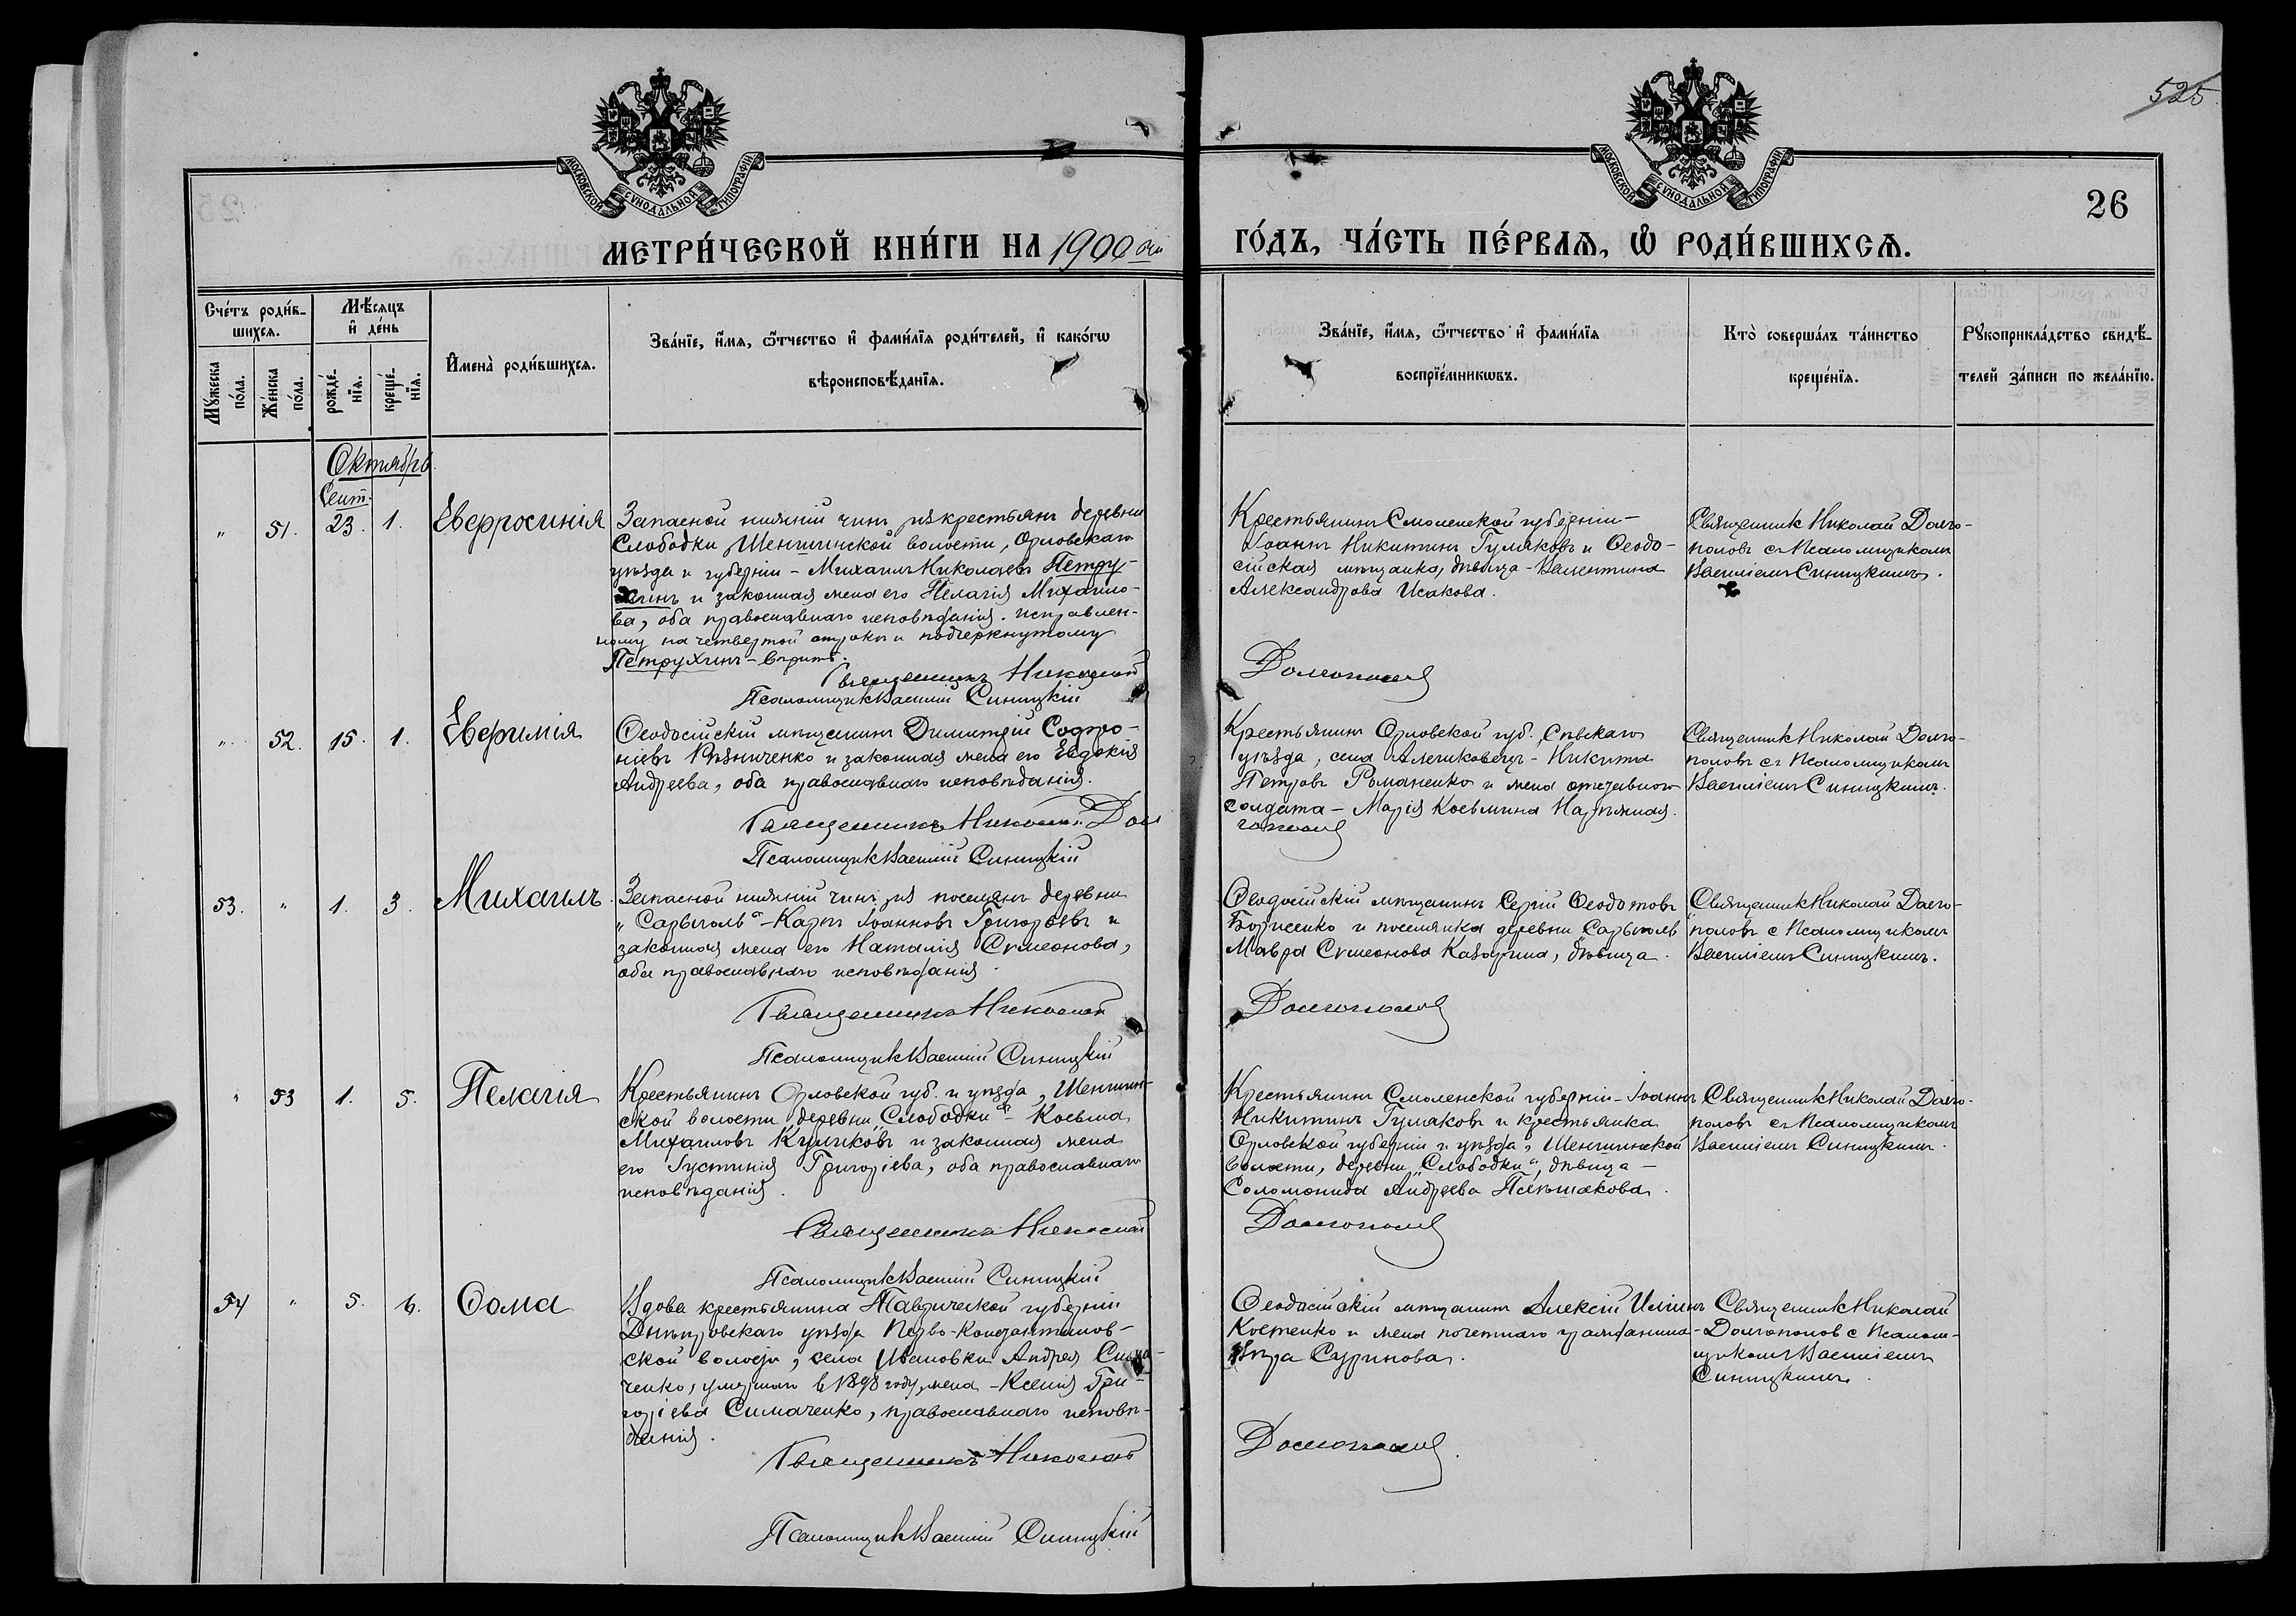 525
МОСКОВСКОЙ СѴНОДАЛЬНОЙ ТИПОГРАФІИ
МОСКОВСКОЙ СѴНОДАЛЬНОЙ ТИПОГРАФІИ
26
МЕТРИ́ЧЕСКОЙ КНИ́ГИ НА 1900 ый
ГО́ДЪ, ЧА́СТЬ ПЕ́РВАЯ, Ѡ РОДИ́ВШИХСЯ.
Сче́тъ роди́в-
шихсѧ.
Мѣ́сѧцъ
и҆ де́нь
Мꙋ́жеска по́ла.
Же́нска по́ла.
рожде́-
нїѧ.
креще́-
нїѧ.
И҆мена̀ роди́вшихсѧ.
Зва́нїе, и҆́мѧ, ѻ҆́тчество и҆ фами́лїѧ роди́телей, и҆ како́гѡ
вѣроисповѣ́данїѧ.
Зва́нїе, и҆́мѧ, ѻ҆́тчество и҆ фами́лїѧ
воспрїе́мникѡвъ.
Кто̀ соверша́лъ та́инство
креще́нїѧ.
Рꙋкоприкла́дство свидѣ́-
телей за́писи по жела́нїю.
Октябрь.
Сент.
" 51. 23. 1. Евфросинія
Запасной нижній чинъ изъ крестьянъ деревни
Слободки, Шеншинской волости, Орловскаго
уѣзда и губерніи – Михаилъ Николаевъ Петру-
хинъ и законная жена его Пелагія Михаило-
ва, оба православнаго исповѣданія. исправлен-
ному на четвертой строкѣ и подчеркнутому
Петрухинъ – вѣрить.
Священникъ Николай
Псаломщикъ Василій Синицкій
Крестьянинъ Смоленской губерніи –
Іоаннъ Никитинъ Гумаковъ и Ѳеодо-
сійская мѣщанка, дѣвица – Валентина
Александрова Исакова.
Долгополов
Священникъ Николай Долго-
половъ съ Псаломщикомъ
Василіемъ Синицкимъ.
" 52. 15. 1. Евфимія
Ѳеодосійскій мѣщанинъ Димитрій Софро-
ніевъ Рѣзниченко и законная жена его Евдокія
Андреева, оба православнаго исповѣданія.
Священникъ Николай Дол
Псаломщикъ Василій Синицкій
Крестьянинъ Орловской губ. Сѣвскаго
уѣзда, села Алешковечь – Никита
Петровъ Романенко и жена отставного
солдата – Марія Косьмина
гополов
Священникъ Николай Долго-
половъ съ Псаломщикомъ
Василіемъ Синицкимъ.
53. " 1. 3. Михаилъ.
Запасной нижній чинъ изъ поселянъ деревни
"Сарыголь" – Карпъ Іоанновъ Григорьевъ и
законная жена его Наталія Симеонова,
оба православнаго исповѣданія.
Священникъ Николай
Псаломщикъ Василій Синицкій
Ѳеодосійскій мѣщанинъ Сергій Ѳеодотовъ
Борисенко и поселянка деревни "Сарыголь"
Мавра Симеонова Казарина, дѣвица.
Долгополов
Священникъ Николай Долго-
половъ с Псаломщикомъ
Василіемъ Синицкимъ.
" 53 1. 5. Пелагія
Крестьянинъ Орловской губ. и уѣзда, Шеншин-
ской волости, деревни "Слободки" – Косьма
Михаиловъ Куличковъ и законная жена
его Густинія Григоріева, оба православнаго
исповѣданія.
Священникъ Николай
Псаломщикъ Василій Синицкій
Крестьянинъ Смоленской губерніи – Іоаннъ
Никитинъ Гумаковъ и крестьянка
Орловской губерніи и уѣзда, Шеншинской
волости, деревни "Слободки", дѣвица –
Соломонида Андреева
Долгополов
Священникъ Николай Долго-
половъ съ Псаломщикомъ
Василіемъ Синицкимъ.
54 " 5. 6. Ѳома
Вдова крестьянина Таврической губерніи
Днѣпровскаго уѣзда Перво-Константинов-
ской волости, села Ивановки Андрея Сима-
ченко, умершаго въ 1898 году, жена – Ксенія Гри-
горіева Симаченко, православнаго исповѣ-
данія.
Священникъ Николай
Псаломщикъ Василій Синицкій
Ѳеодосійскій мѣщанинъ Алексій Иліинъ
Костенко и жена почетнаго гражданина –
Вѣра Суринова.
Долгополов
Священникъ Николай
Долгополов с Псалом-
щикомъ Василіемъ
Синицкимъ.